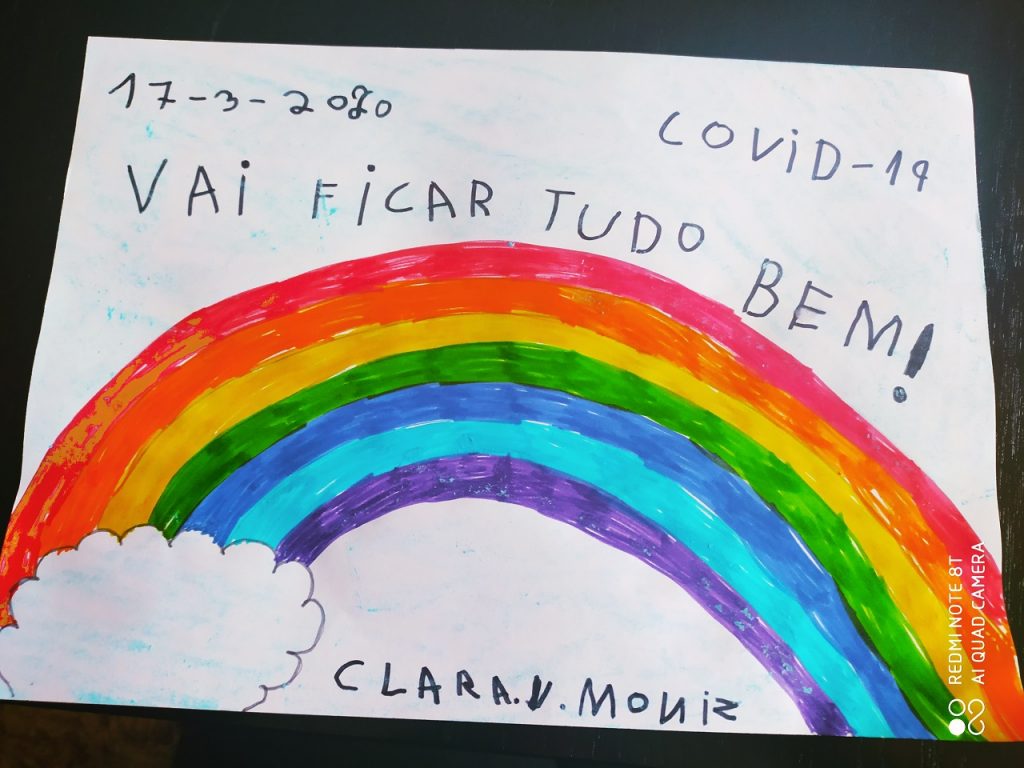 17-3-2020
COVID-19
VAi FiCAR TUDO BEM!
CLARA.V.MONiz
REDMI NOTE 8T
AI QUAD CAMERA